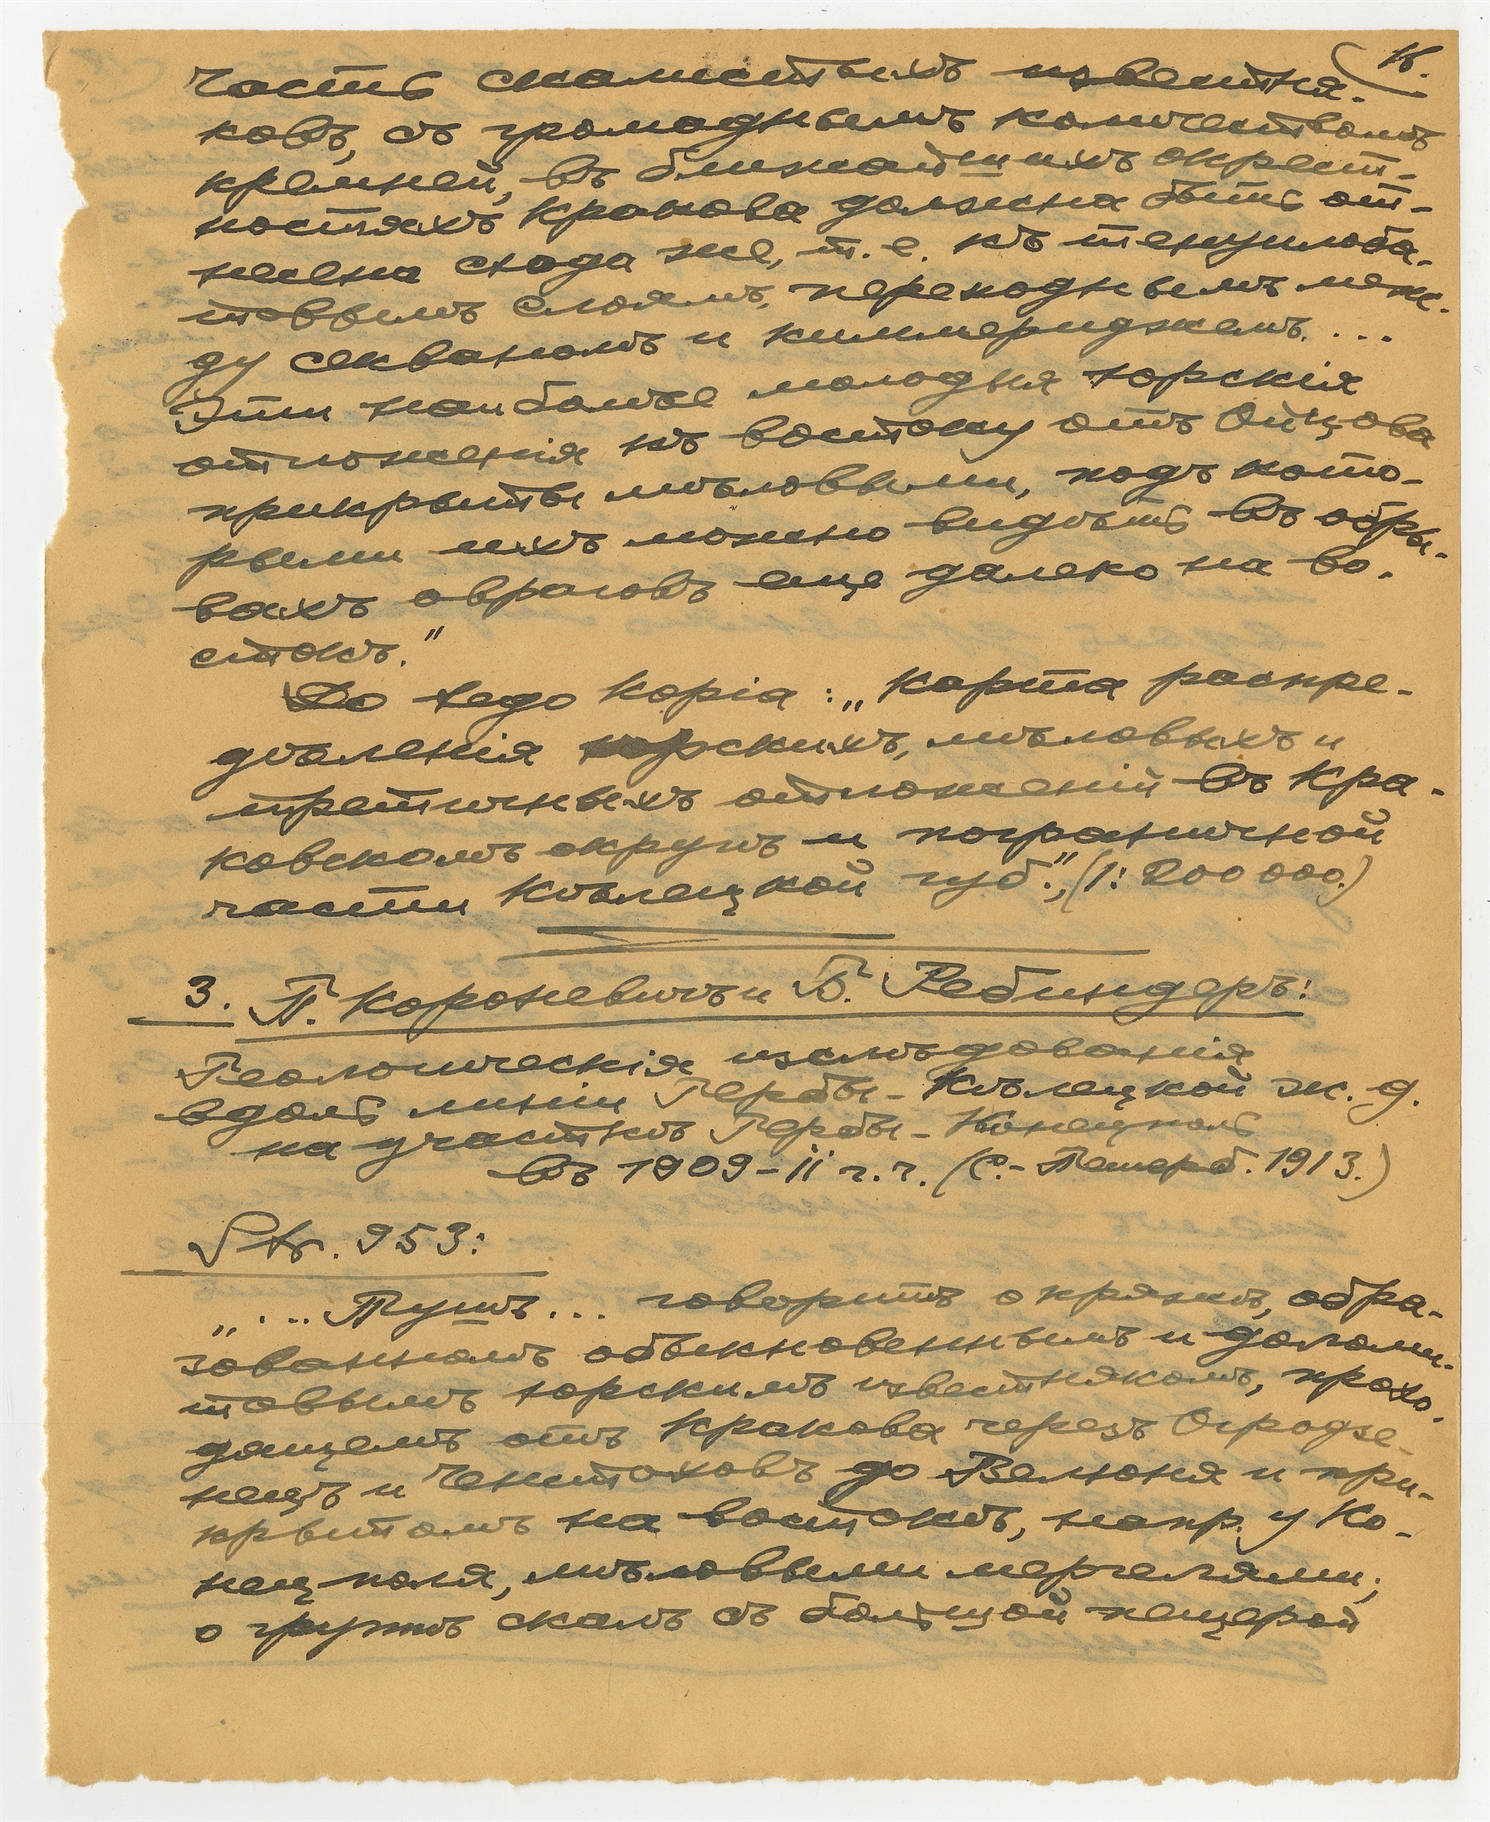 К.
часть скалистыхъ известня-
ковъ, съ громаднымъ количествомъ
кремней, въ ближайшихъ окрест-
ностяхъ Кракова должна быть от-
несена сюда же, т. е. къ тенуилоба-
товымъ слоямъ, переходнымъ меж-
ду секваномъ и киммериджемъ. ...
Эти наиболѣе молодыя юрскія
отложенія къ востоку отъ Ойцова
прикрыты мѣловыми, подъ кото-
рыми ихъ можно видѣть въ обры-
вахъ овраговъ еще далеко на во-
стокъ."
Do tego kopia: „Карта распре-
дѣленія юрскихъ, мѣловыхъ и
третичныхъ отложеній въ Кра-
ковскомъ округѣ и пограничной
части Кѣлецкой губ.", (1:200 000.)
3. П. Короневичъ и Б. Ребиндеръ:
Геологическія изслѣдованія
вдоль линіи Гербы-Кѣлецкой ж. д.
на участкѣ Гербы-Конецполь
въ 1909-11 г.г. (С.-Петерб. 1913.)
Str. 953:
„.... Пушъ... говоритъ о кряжѣ, обра-
зованномъ обыкновеннымъ и доломи-
товымъ юрскимъ известнякомъ, прохо-
дящемъ отъ Кракова черезъ Огродзе-
нецъ и Ченстоховъ до Велюня и при-
крытомъ на востокѣ, напр. у Ко-
нецполя, мѣловыми мергелями;
о группѣ скалъ съ большой пещерой